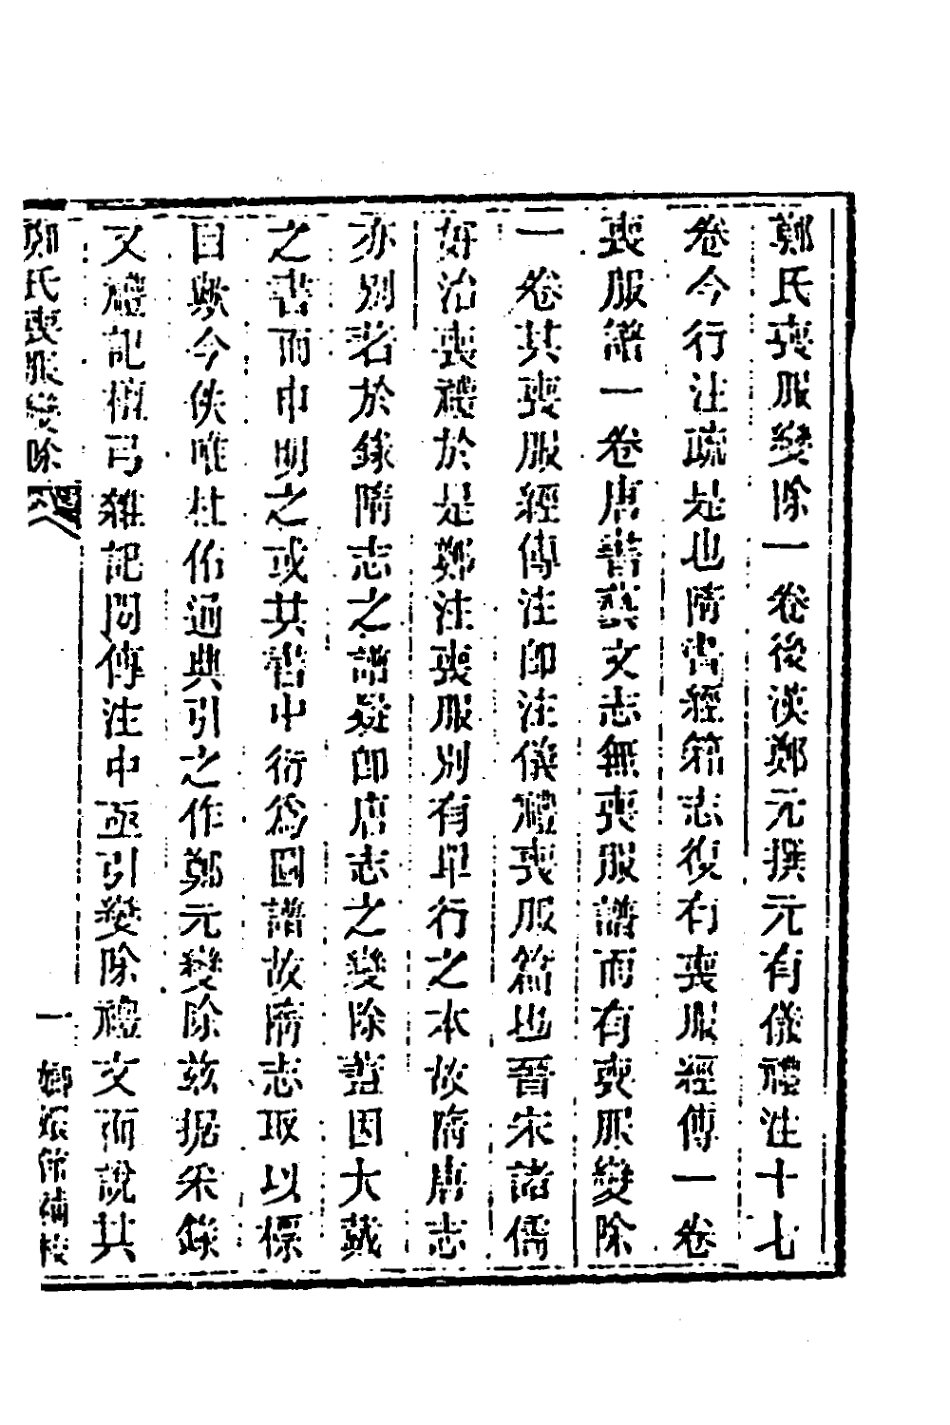 鄭氏喪服變除一卷後漢鄭元撰元有儀禮注十七
卷今行注疏是也隋書經籍志復有喪服經傳一卷
喪服譜一卷唐書藝文志無喪服譜而有喪服變除
一卷其喪服經傳注卽注儀禮喪服篇也晉宋諸儒
好治喪禮於是鄭注喪服別有單行之本故隋唐志
亦別著於錄隋志之譜疑卽唐志之變除蓋因大戴
之書而申明之或其書中衍爲圖譜故隋志取以標
目歟今佚唯杜佑通典引之作鄭元變除茲据采錄
又禮記檀弓雜記問傳注中亟引變除禮文而說其
鄭氏喪服變除
一
嫏嬛館補校